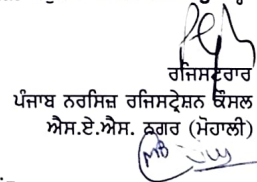 ਰਜਿਸਟਰਾਰ
ਪੰਜਾਬ ਨਰਸਿਜ਼ ਰਜਿਸਟ੍ਰੇਸ਼ਨ ਕੌਂਸਲ
ਐਸ.ਏ.ਐਸ. ਨਗਰ (ਮੋਹਾਲੀ)